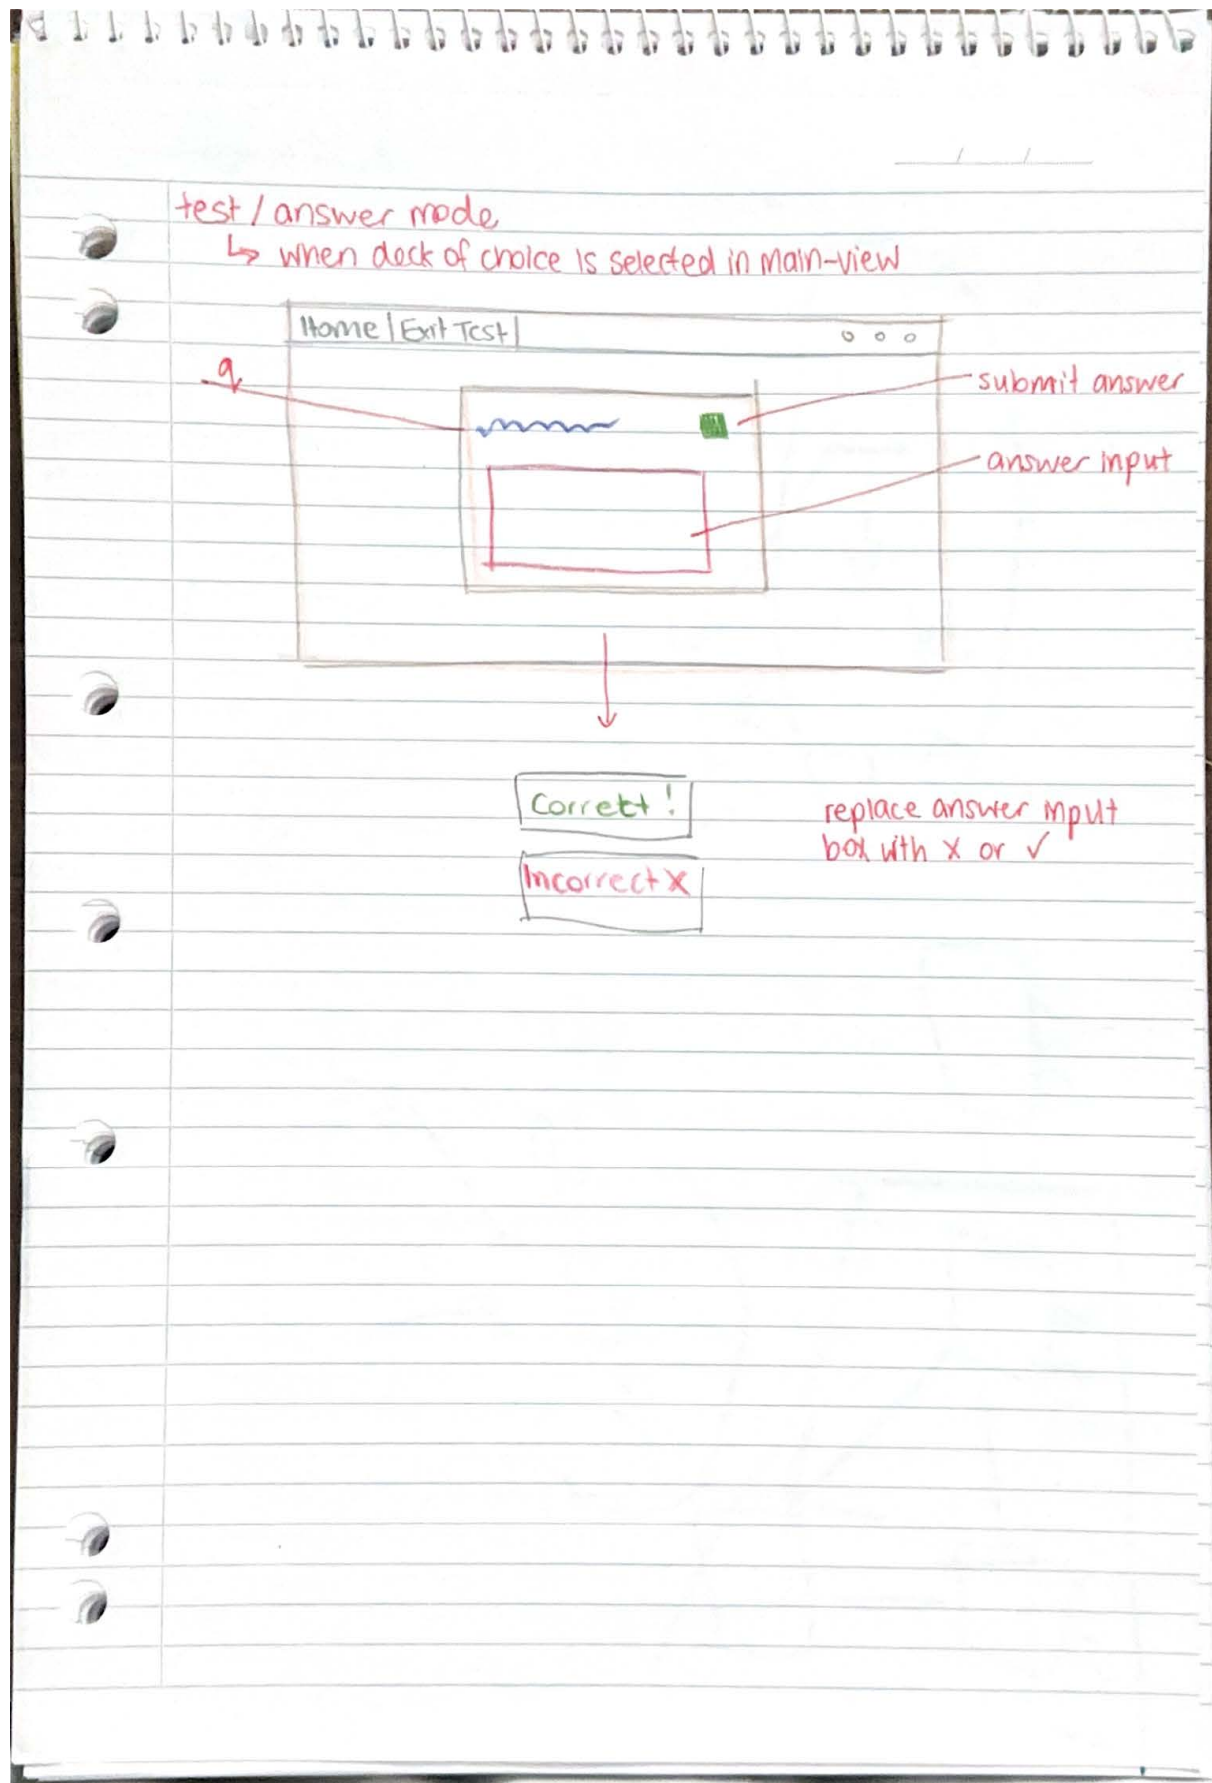 test / answer mode
↳ when deck of choice is selected in main-view
Home | Exit Test |
q
submit answer
answer input
Correct !
Incorrect x
replace answer input
box with x or ✓